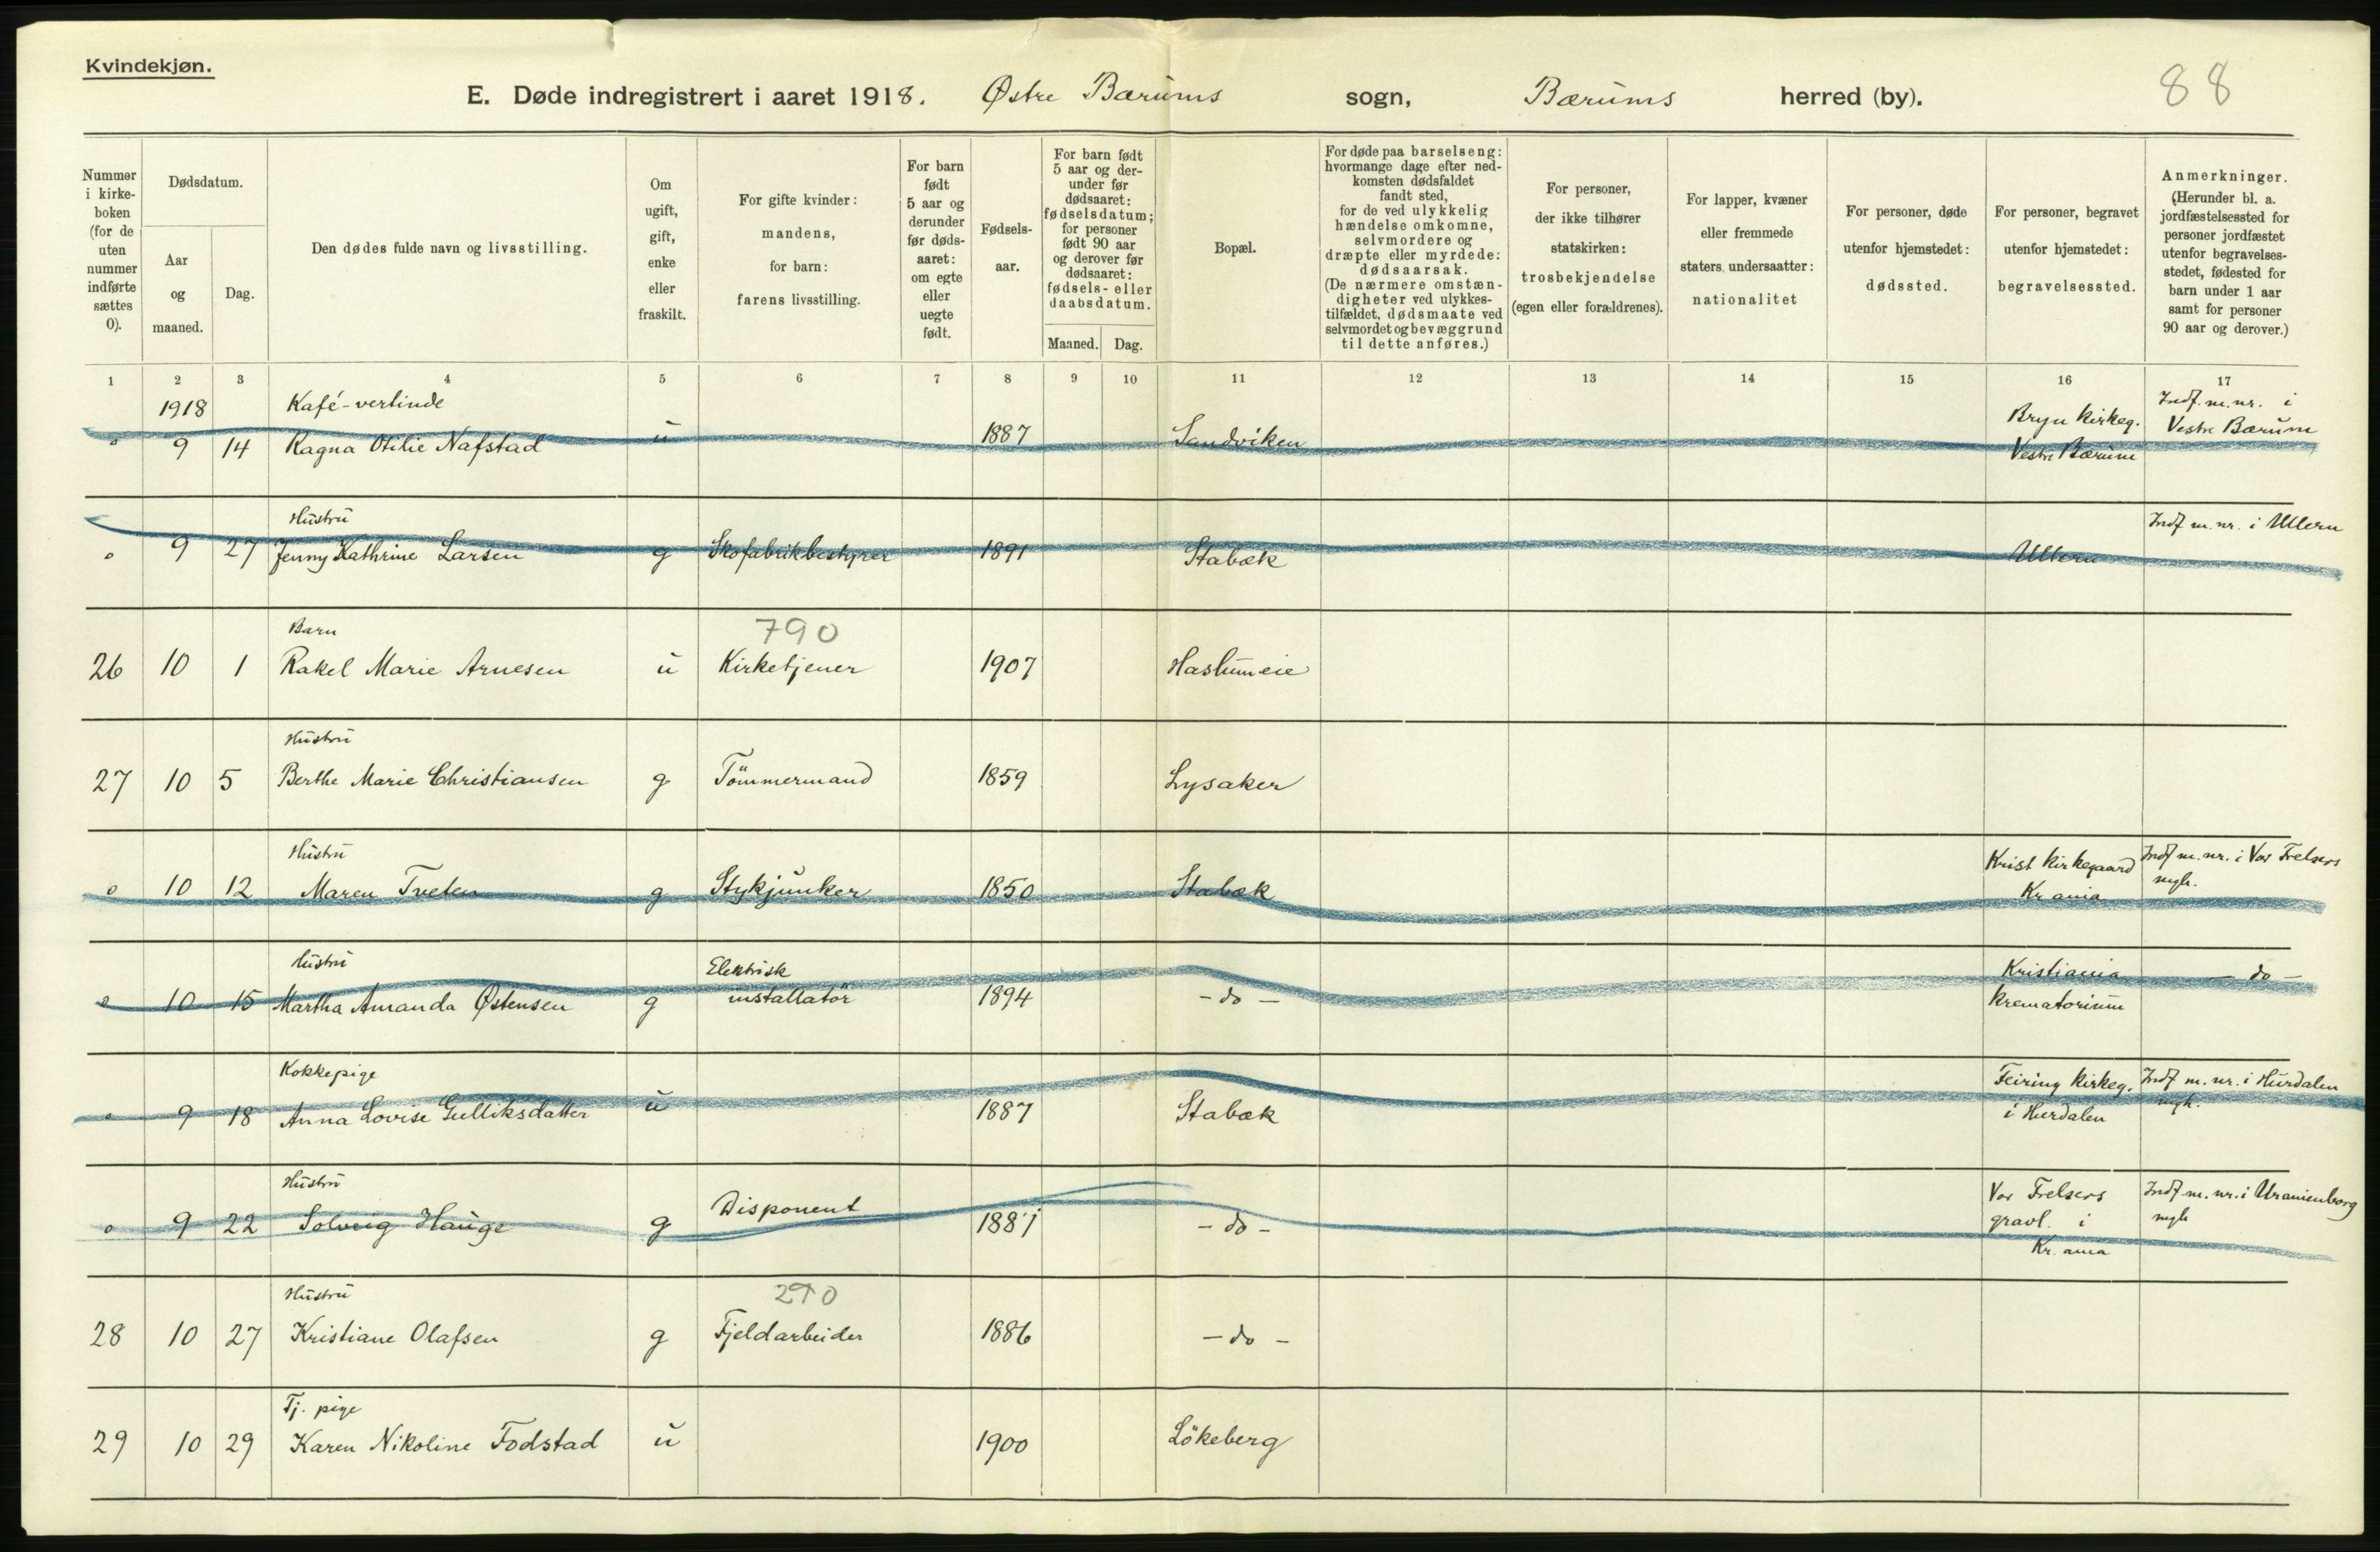 Kvindekjøn.
E. Døde indregistrert i aaret 1918. Østre Bærums sogn, Bærums herred (by). 88
Nummer i kirke-boken (for de uten nummer indførte sættes 0).
Dødsdatum.
Aar og maaned.
Dag.
Den dødes fulde navn og livsstilling.
Om ugift, gift, enke eller fraskilt.
For gifte kvinder: mandens, for barn: farens livsstilling.
For barn født 5 aar og derunder før døds-aaret: om egte eller uegte født.
Fødsels-aar.
For barn født 5 aar og der-under før dødsaaret: fødselsdatum; for personer født 90 aar og derover før dødsaaret: fødsels- eller daabsdatum.
Maaned. Dag.
Bopæl.
For døde paa barselseng: hvormange dage efter ned-komsten dødsfaldet fandt sted, for de ved ulykkelig hændelse omkomne, selvmordere og dræpte eller myrdede: dødsaarsak. (De nærmere omstæn-digheter ved ulykkes-tilfældet, dødsmaate ved selvmordet og bevæggrund til dette anføres.)
For personer, der ikke tilhører statskirken: trosbekjendelse (egen eller forældrenes).
For lapper, kvæner eller fremmede staters undersaatter: nationalitet
For personer, døde utenfor hjemstedet: dødssted.
For personer, begravet utenfor hjemstedet: begravelsessted.
Anmerkninger. (Herunder bl. a. jordfæstelsessted for personer jordfæstet utenfor begravelses-stedet, fødested for barn under 1 aar samt for personer 90 aar og derover.)
1 2 3 4 5 6 7 8 9 10 11 12 13 14 15 16 17
1918 Kafé-vertinde Indf. m. nr. i
o 9 14 Ragna Otilie Nafstad u 1887 Sandviken Bryn kirkeg. Vestre Bærum
Vestre Bærum
Hustru Indf m. nr. i Ullern
o 9 27 Jenny Kathrine Larsen g Skofabrikbestyrer 1891 Stabæk Ullern
Barn 790
26 10 1 Rakel Marie Arnesen u Kirketjener 1907 Haslumeie
Hustru
27 10 5 Berthe Marie Christiansen g Tömmermand 1859 Lysaker
Hustru Krist kirkegaard Indf m. nr. i Vor Frelsers
o 10 12 Maren Tveten g Stykjunker 1850 Stabæk Kr.ania mgh.
Hustru Elektrisk Kristiania - do -
o 10 15 Martha Amanda Østensen g installatör 1894 - do - krematorium
Kokkepige Feiring kirkeg. Indf m. nr. i Hurdalen
o 9 18 Anna Lovise Gulliksdatter u 1887 Stabæk i Hurdalen mgh.
Hustru Vor Frelsers Indf m. nr. i Uranienborg
o 9 22 Solveig Hauge g Disponent 1881 - do - gravl. i mgh
Kr.ania
Hustru 290
28 10 27 Kristiane Olafsen g Fjeldarbeider 1886 - do -
Tj. pige
29 10 29 Karen Nikoline Fodstad u 1900 Lökeberg